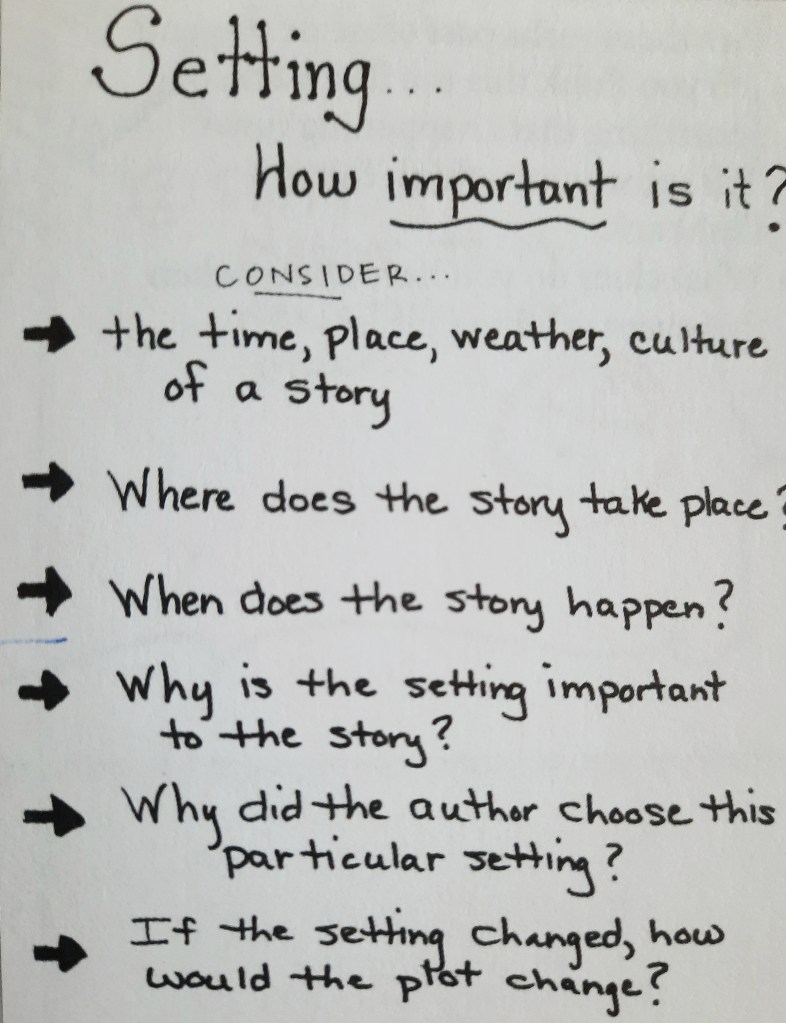 Setting...
How important is it?
CONSIDER...
the time, place, weather, culture
of a story
Where does the story take place?
When does the story happen?
Why is the setting important
to the story?
Why did the author choose this
particular setting?
If the setting changed, how
would the plot change?